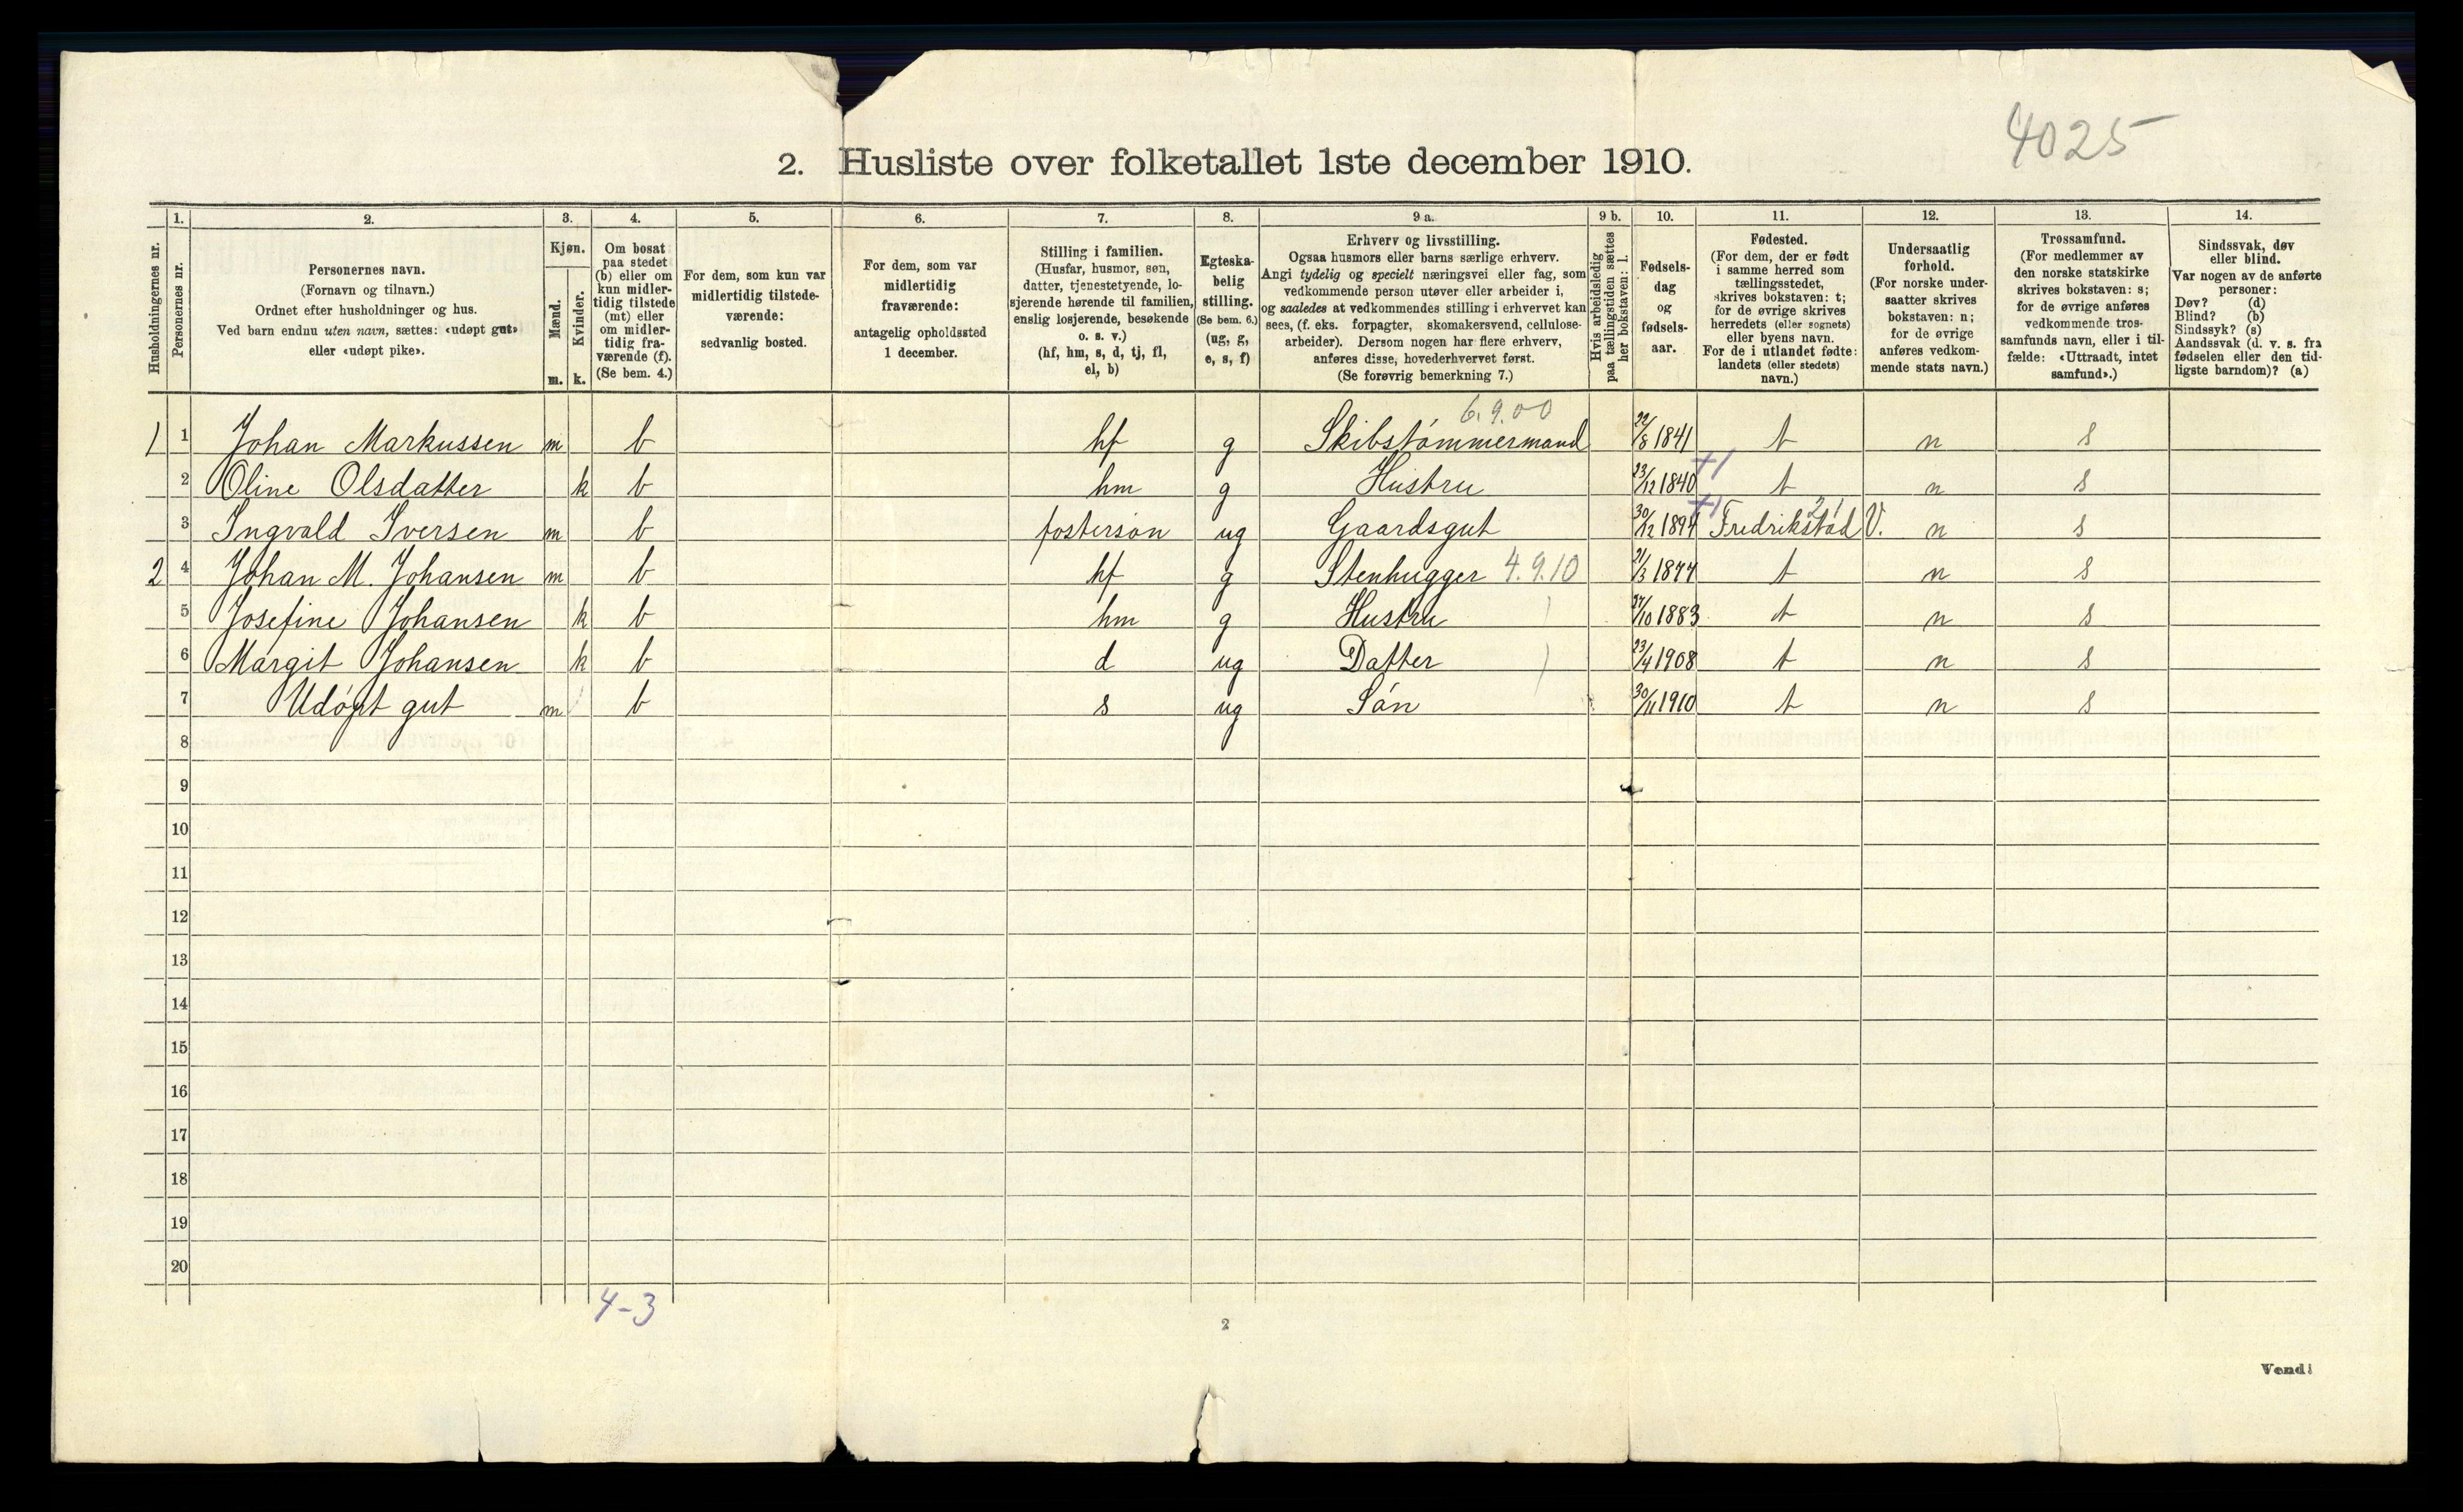 4025
2. Husliste over folketallet 1ste december 1910.
Husholdningernes nr.
1. Personernes nr.
2. Personernes navn. (Fornavn og tilnavn.) Ordnet efter husholdninger og hus. Ved barn endnu uten navn, sættes: «udøpt gut» eller «udøpt pike».
3. Kjøn. Mænd. m. Kvinder. k.
4. Om bosat paa stedet (b) eller om kun midlertidig tilstede (mt) eller om midlertidig fraværende (f). (Se bem. 4.)
5. For dem, som kun var midlertidig tilstedeværende: sedvanlig bosted.
6. For dem, som var midlertidig fraværende: antagelig opholdssted 1 december.
7. Stilling i familien. (Husfar, husmor, søn, datter, tjenestetyende, losjerende hørende til familien, enslig losjerende, besøkende o. s. v.) (hf, hm, s, d, tj, fl, el, b)
8. Egteskabelig stilling. (Se bem. 6.) (ug, g, e, s, f)
9 a. Erhverv og livsstilling. Ogsaa husmors eller barns særlige erhverv. Angi tydelig og specielt næringsvei eller fag, som vedkommende person utøver eller arbeider i, og saaledes at vedkommendes stilling i erhvervet kan sees, (f. eks. forpagter, skomakersvend, cellulosearbeider). Dersom nogen har flere erhverv, anføres disse, hovederhvervet først. (Se forøvrig bemerkning 7.)
9 b. Hvis arbeidsledig paa tællingstiden sættes her bokstaven: l.
10. Fødselsdag og fødselsaar.
11. Fødested. (For dem, der er født i samme herred som tællingsstedet, skrives bokstaven: t; for de øvrige skrives herredets (eller sognets) eller byens navn. For de i utlandet fødte: landets (eller stedets) navn.)
12. Undersaatlig forhold. (For norske undersaatter skrives bokstaven: n; for de øvrige anføres vedkommende stats navn.)
13. Trossamfund. (For medlemmer av den norske statskirke skrives bokstaven: s; for de øvrige anføres vedkommende trossamfunds navn, eller i tilfælde: «Uttraadt, intet samfund».)
14. Sindssvak, døv eller blind. Var nogen av de anførte personer: Døv? (d) Blind? (b) Sindssyk? (s) Aandssvak (d. v. s. fra fødselen eller den tidligste barndom)? (a)
6.9.00
1 1 Johan Markussen m b hf g Skibstømmermand 22/8 1841 t n s
2 Oline Olsdatter k b hm g Hustru 23/12 1840 t n s
3 Ingvald Iversen m b fostersøn ug Gaardsgut 30/12 1894 Fredrikstad V. n s
2 4 Johan M. Johansen m b hf g Stenhugger 4.9.10 21/3 1877 t n s
5 Josefine Johansen k b hm g Hustru 27/10 1883 t n s
6 Margit Johansen k b d ug Datter 23/4 1908 t n s
7 Udøpt gut m b s ug Søn 30/11 1910 t n s
8
9
10
11
12
13
14
15
16
17
18
19
20
4-3
2
Vend!